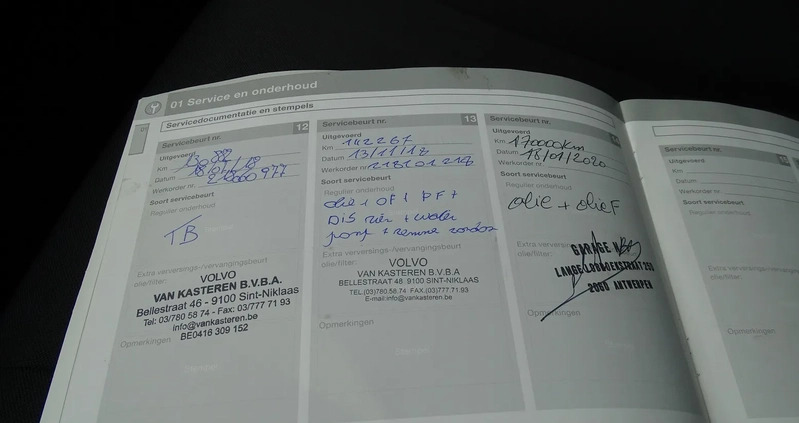 01 Service en onderhoud
Servicedocumentatie en stempels
Servicebeurt nr. 12
Uitgevoerd
Km
Datum
Werkorder nr
Soort servicebeurt
Regulier onderhoud
TB
Extra verversings-/vervangingsbeurt
olie/filter:
VOLVO
VAN KASTEREN B.V.B.A.
Bellestraat 46 - 9100 Sint-Niklaas
Tel: 03/780 58 74 - Fax: 03/777 71 93
info@vankasteren.be
BE0416 309 152
Opmerkingen
Servicebeurt nr. 13
Uitgevoerd
Km 142267
Datum 13/11/18
Werkorder nr.
Soort servicebeurt
Regulier onderhoud
olie + OF + PF +
DIS riem + water
pomp +
Extra verversings-/vervangingsbeurt
olie/filter:
VOLVO
VAN KASTEREN B.V.B.A
BELLESTRAAT 48 9100 SINT-NIKLAAS
TEL.(03)780.58.74 FAX.(03)777.71.93
E-mail:info@vankasteren.be
Opmerkingen
Servicebeurt nr.
Uitgevoerd
Km 170000km
Datum 18/01/2020
Werkorder nr
Soort servicebeurt
Regulier onderhoud
olie + olieF
Extra verversings
olie/filter
GARAGE
2060 ANTWERPEN
Opmerkingen
Servicebeurt nr.
Uitgevoerd
Km
Datum
Werkorder nr
Soort servicebeurt
Regulier onderhoud
Extra verversings
olie/filter:
Opmerkingen